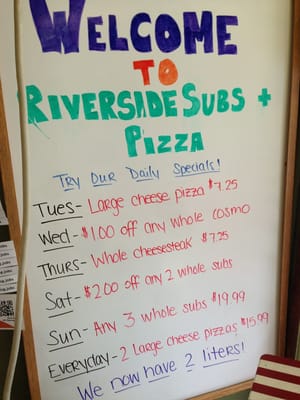 WELCOME
TO
RIVERSIDE SUBS +
PIZZA
Try Our Daily Specials!
Tues - Large cheese pizza $7.25
Wed - $1.00 off any whole cosmo
Thurs - Whole cheesesteak $7.25
Sat - $2.00 off any 2 whole subs
Sun - Any 3 whole subs $19.99
Everyday - 2 Large cheese pizzas $15.99
We now have 2 liters!